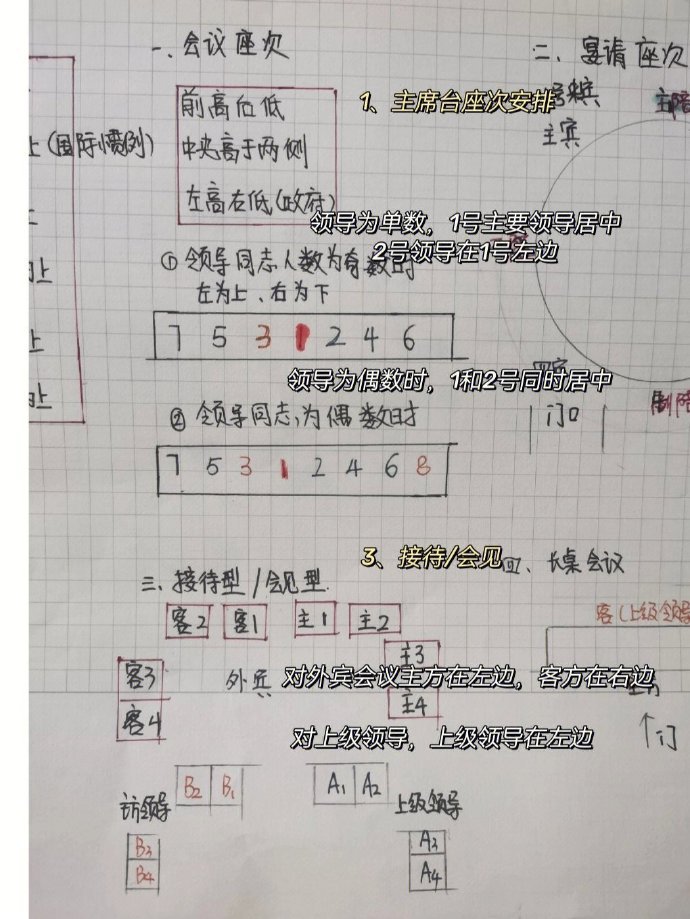 一、会议座次
前高后低
中央高于两侧
左高右低(政府)
1、主席台座次安排
领导为单数，1号主要领导居中
2号领导在1号左边
① 领导同志人数为奇数时
左为上、右为下
7 5 3 1 2 4 6
领导为偶数时，1和2号同时居中
② 领导同志,为偶数时
7 5 3 1 2 4 6 8
上(国际惯例)
上
上
上
二、宴请座次
主宾
门口
3、接待/会见
三、接待型/会见型
客2 客1 主1 主2
客3 外宾 主3
客4 主4
对外宾会议主方在左边，客方在右边
对上级领导，上级领导在左边
B2 B1 A1 A2
访领导 上级领导
B3 A3
B4 A4
四、长桌会议
客(上级领导
↑门